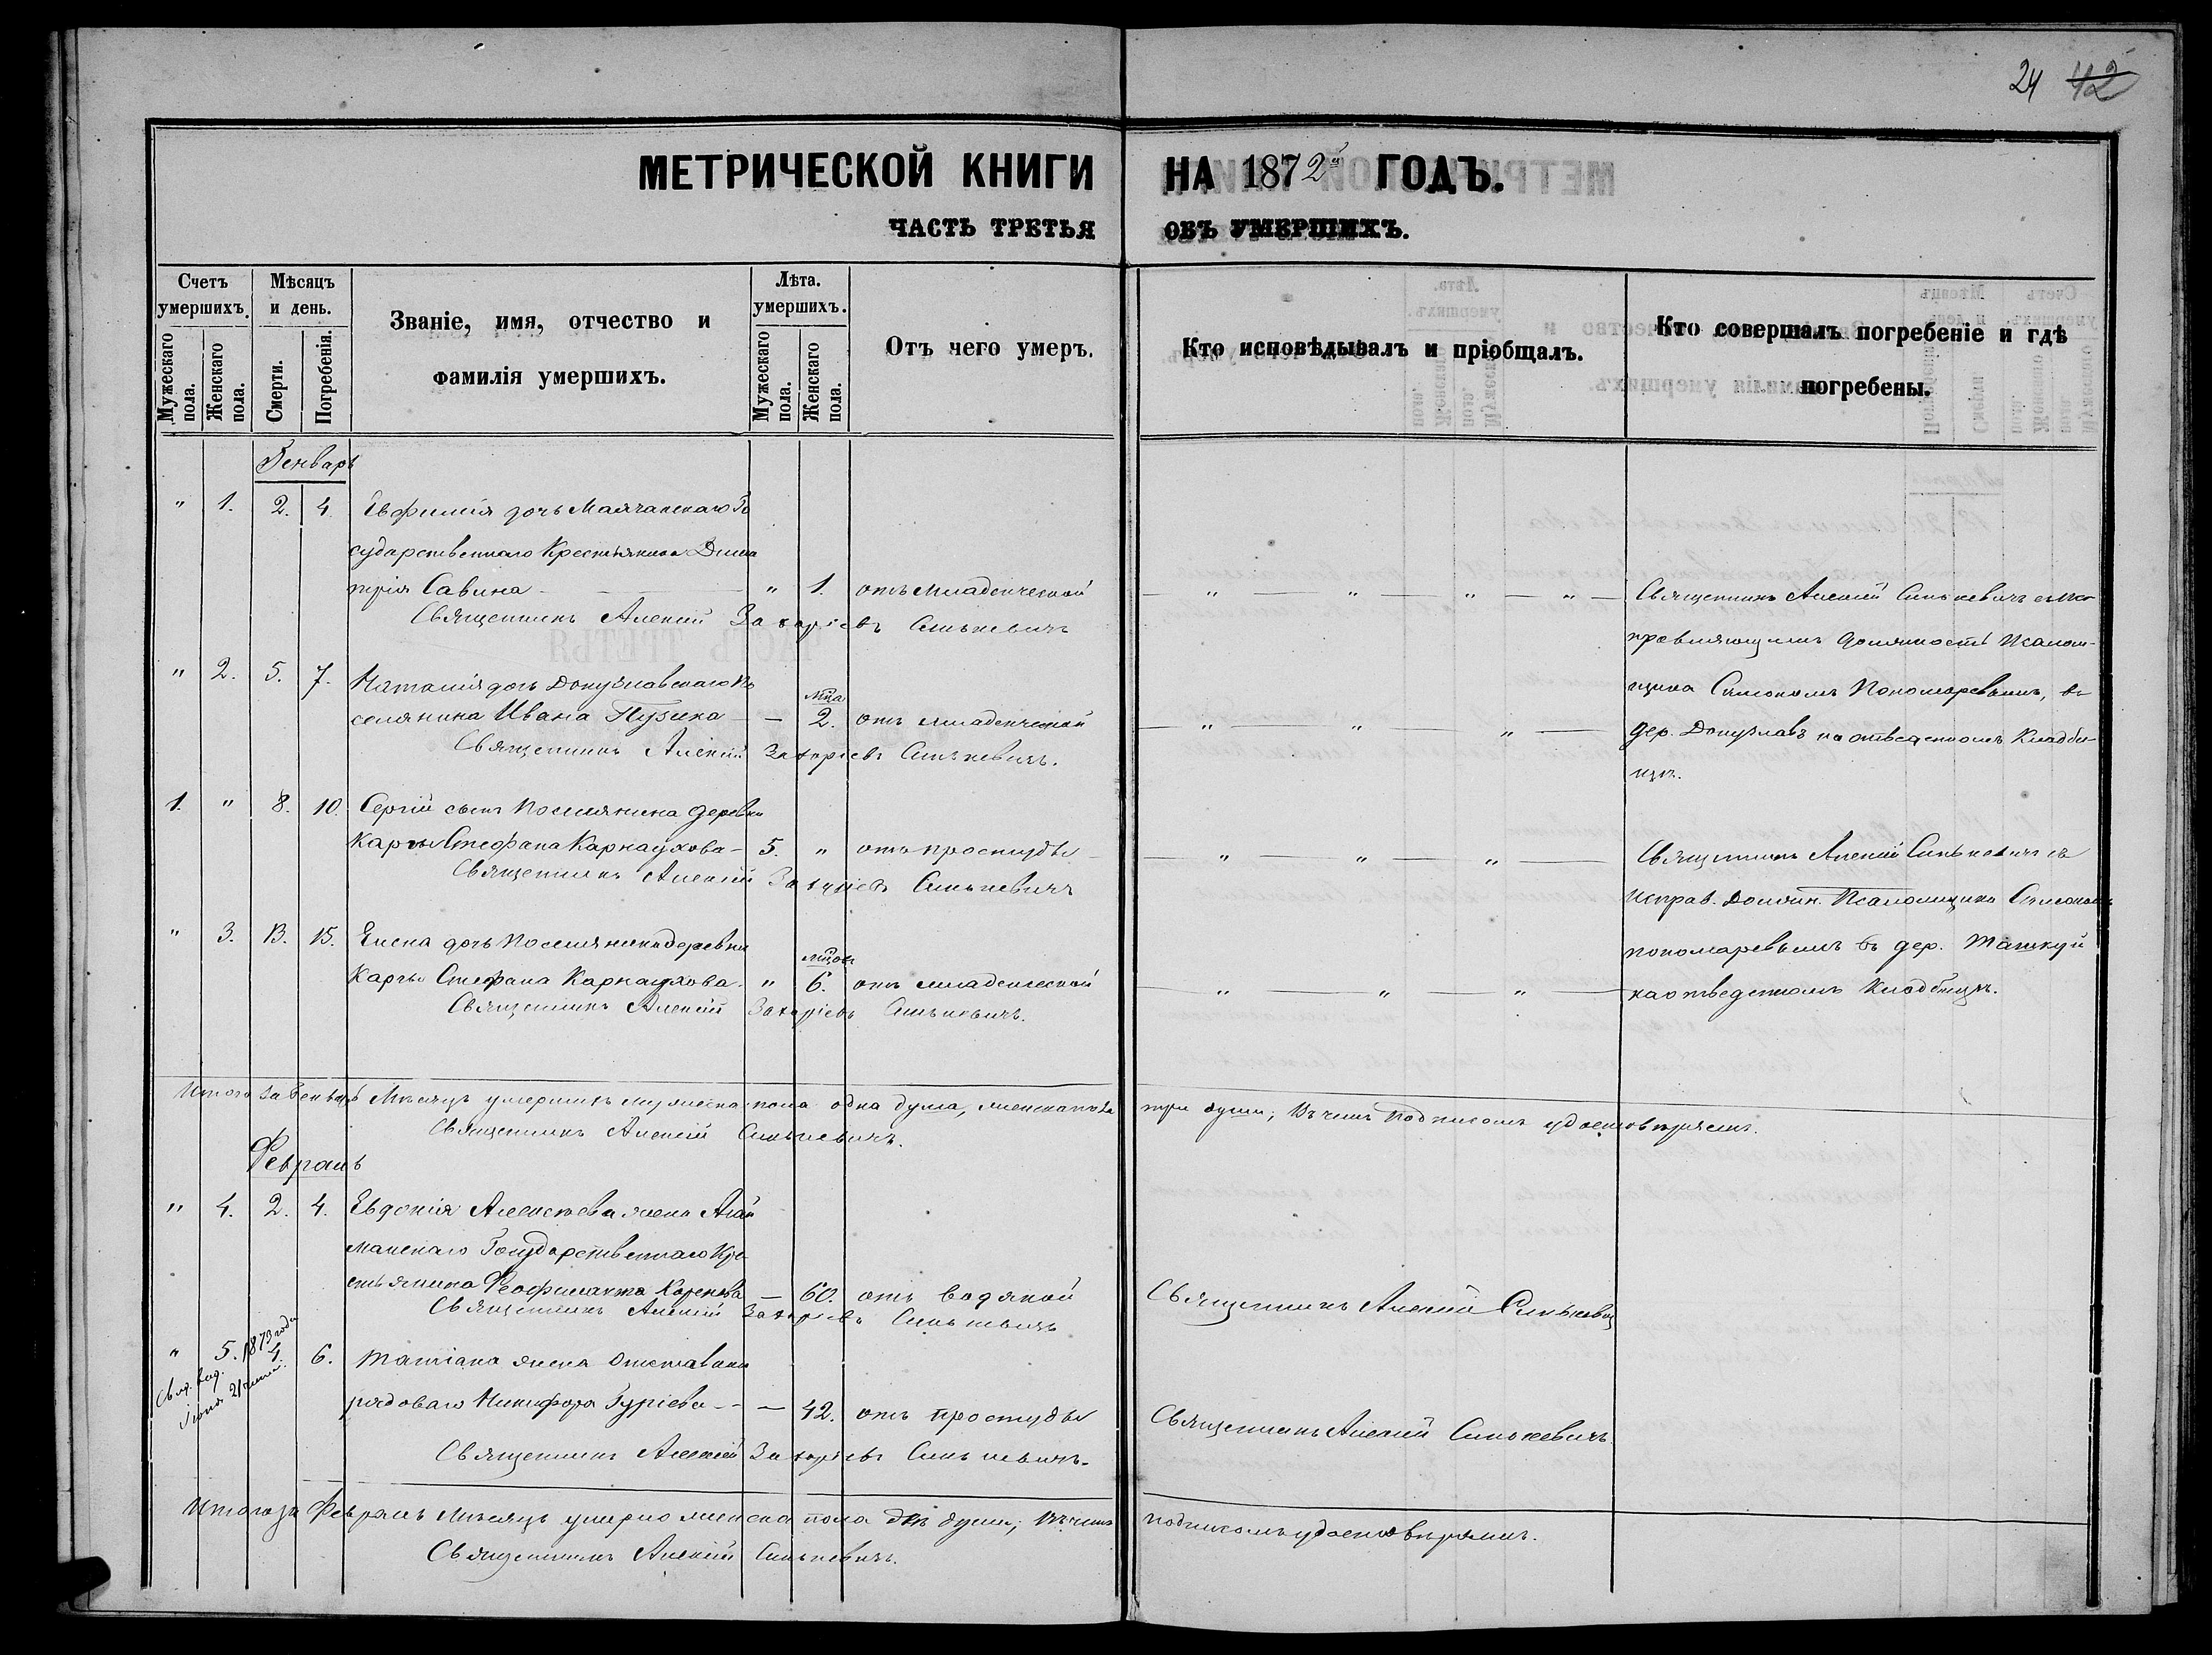 24 42
МЕТРИЧЕСКОЙ КНИГИ НА 1872й ГОДЪ.
ЧАСТЬ ТРЕТЬЯ ОБЪ УМЕРШИХЪ.
Счетъ умершихъ.
Мужескаго пола.
Женскаго пола.
Мѣсяцъ и день.
Смерти.
Погребенія.
Званіе, имя, отчество и
фамилія умершихъ.
Лѣта. умершихъ.
Мужескаго пола.
Женскаго пола.
Отъ чего умеръ.
Кто исповѣдывалъ и пріобщалъ.
Кто совершалъ погребеніе и гдѣ
погребены.
Генварь
" 1. 2. 4. Евфимія дочь Маячанскаго Го
сударственнаго Крестьянина Дими
трія Савина " 1. отъ младенческой
Священникъ Алексій Захаріевъ Синькевичъ
Священникъ Алексій Синькевичъ съ ис
правляющимъ должность Псалом-
щика Симономъ Пономаревымъ, въ
дер. Донузлавъ на отведенномъ Кладби-
щѣ.
" 2. 5. 7. Наталія дочь Донузлавскаго по
селянина Ивана Пузина — мца 2. отъ младенческой
Священникъ Алексій Захаріевъ Синькевичъ.
1. " 8. 10. Сергій сынъ Поселянина деревни
Карчи Стефана Карнаухова 5. " отъ простуды
Священникъ Алексій Захаріевъ Синькевичъ
Священникъ Алексій Синькевичъ съ
Исправ. Должн. Псаломщика Симономъ
пономаревымъ въ дер. Ташкуй
на отведенномъ Кладбищѣ.
" 3. 13. 15. Елена дочь Поселянина деревни
Карчи Стефана Карнаухова. " мцов 6. отъ младенческой
Священникъ Алексій Захаріевъ Синькевичъ.
Итого за Генварь Мѣсяцъ умершихъ мужеска пола одна душа, женска пола три души; Въ чемъ подписомъ удостовѣряемъ.
Священникъ Алексій Синькевичъ.
Февраль
" 4. 2. 4. Евдокія Алексѣева жена Агай
манскаго Государственнаго Кре
стьянина Феофилакта — 60. отъ водяной
Священникъ Алексій Захаріевъ Синькевичъ
Священникъ Алексій Синькевичъ
" 5. 4. 6. Татіана жена Отставнаго
рядоваго Никифора Гуріева — 42. отъ простуды
1873 года
Священникъ Алексій Захаріевъ Синькевичъ.
Священникъ Алексій Синькевичъ
Итого за Февраль Мѣсяцъ умерло женска пола двѣ души; Въ чемъ подписомъ удостовѣряемъ.
Священникъ Алексій Синькевичъ.